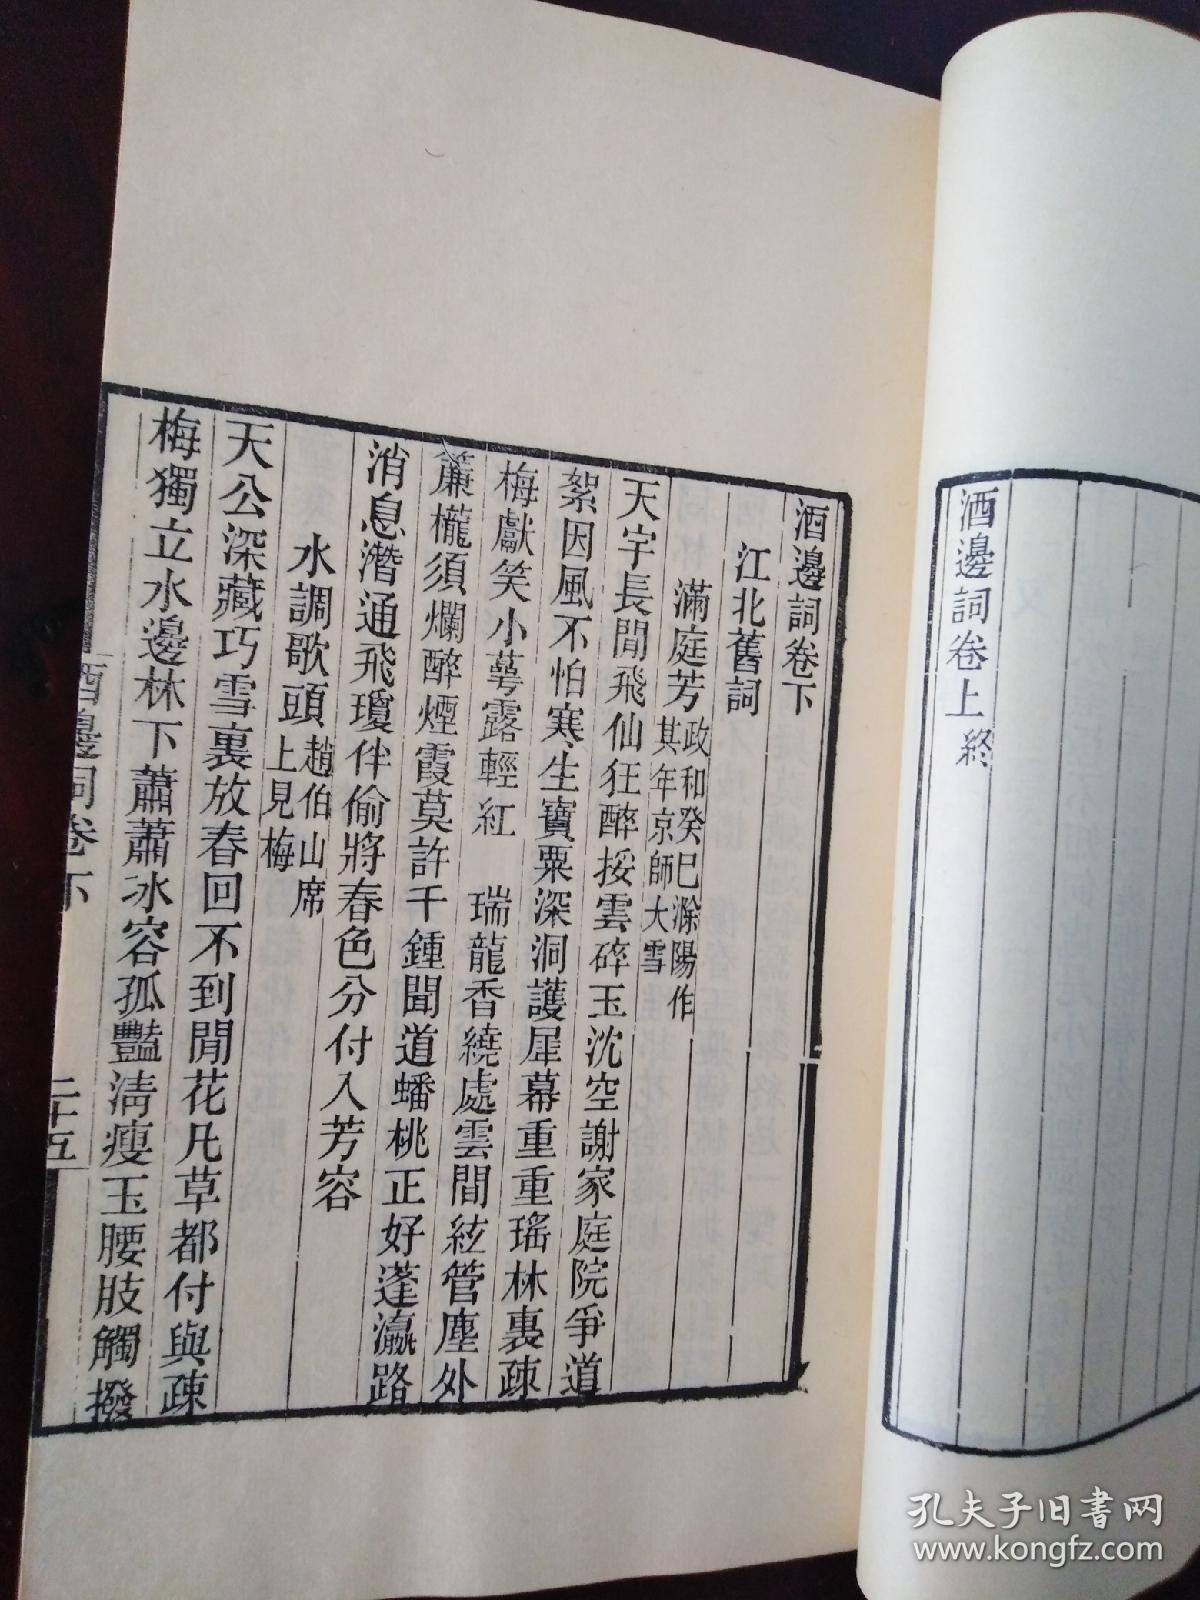 酒邊詞卷上終
酒邊詞卷下
江北舊詞
滿庭芳 政和癸巳滁陽作
其年京師大雪
天宇長閒飛仙狂醉挼雲碎玉沈空謝家庭院爭道
絮因風不怕寒生寶粟深洞護犀幕重重瑤林裏疎
梅獻笑小萼露輕紅 瑞龍香繞處雲間絃管塵外
簾櫳須爛醉煙霞莫許千鍾聞道蟠桃正好蓬瀛路
消息潛通飛瓊伴偷將春色分付入芳容
水調歌頭 趙伯山席
上見梅
天公深藏巧雪裏放春回不到閒花凡草都付與疎
梅獨立水邊林下蕭蕭冰容孤豔清瘦玉腰肢觸撥
酒邊詞卷下
二十五
孔夫子旧书网
www.kongfz.com